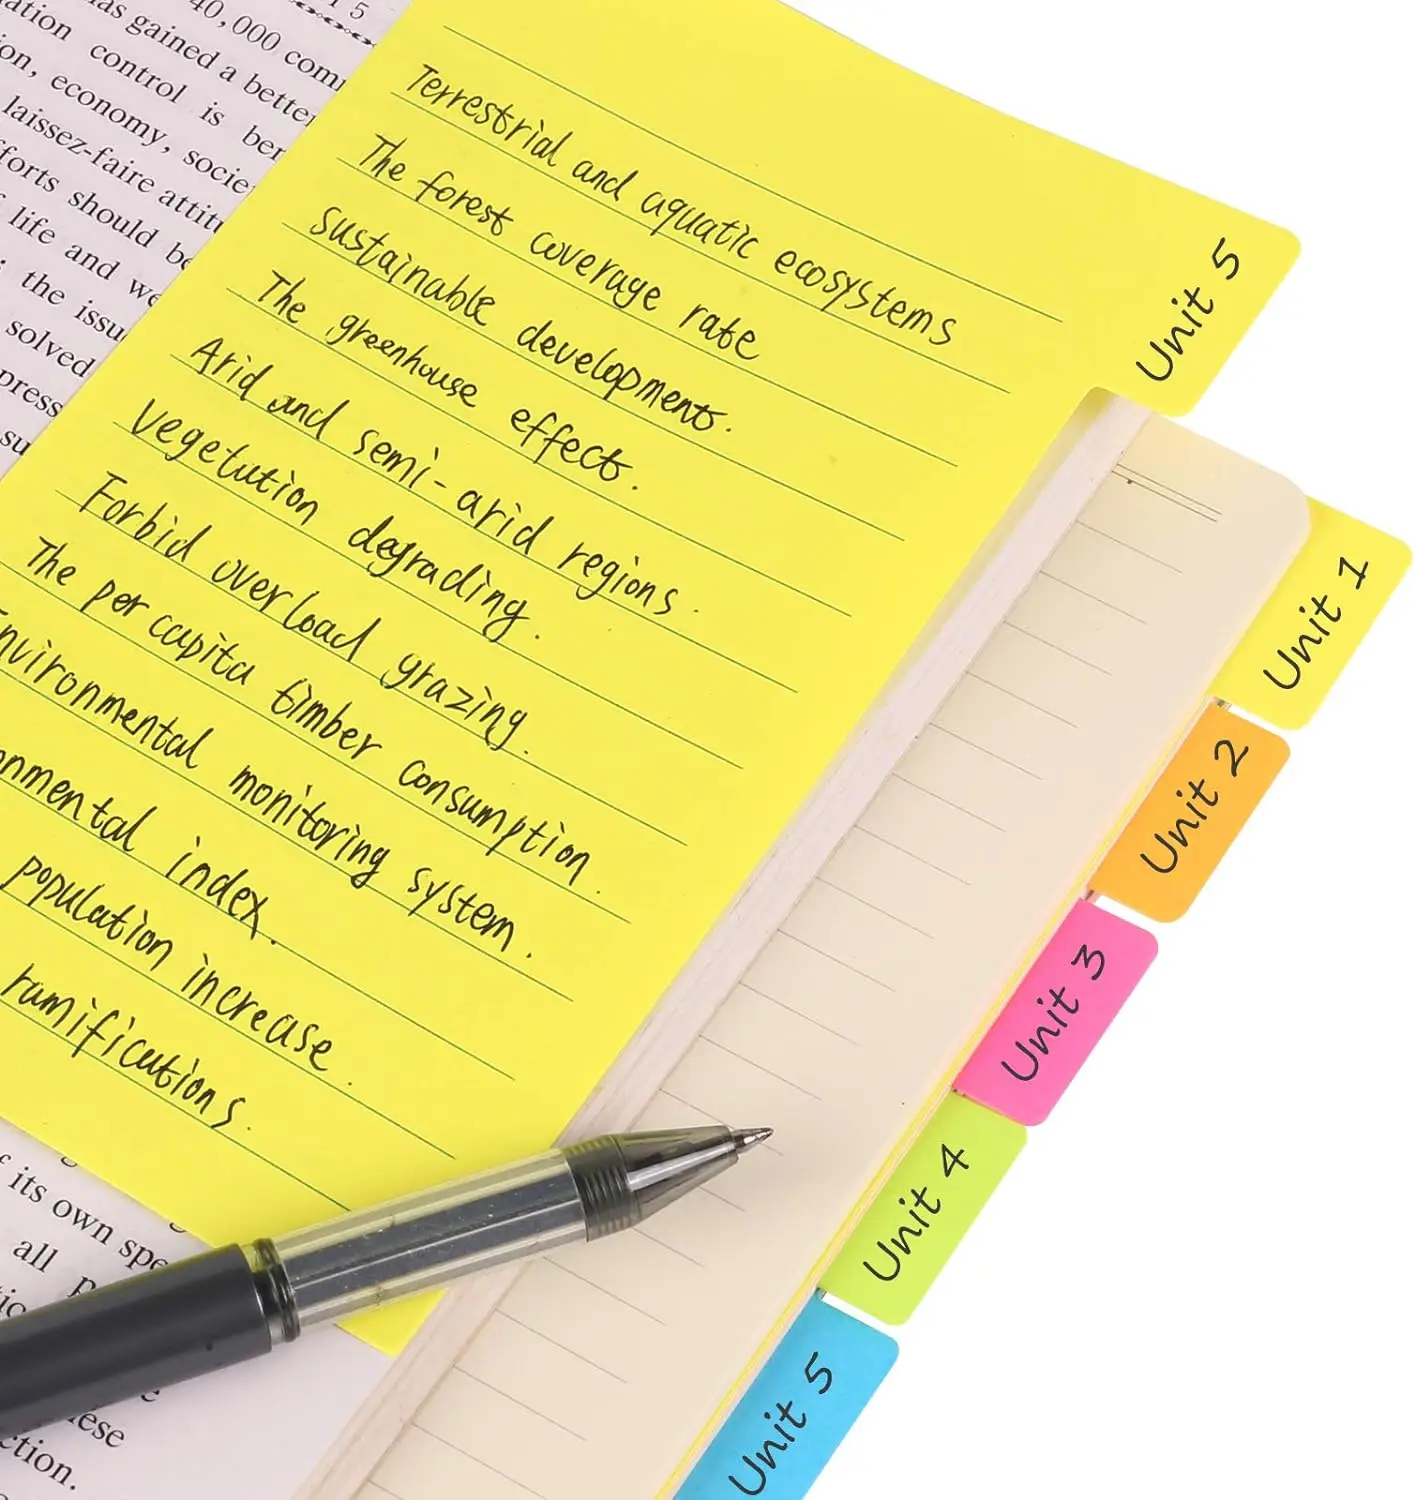 1 5
40,000 com
as gained a better
ation control is ber
on, economy, socie
laissez-faire attitu
forts should be
life and we
the issu
solved
press
su
Terrestrial and aquatic ecosystems
The forest coverage rate
Sustainable development.
The greenhouse effect.
Arid and semi-arid regions.
Vegetation degrading.
Forbid overload grazing.
The per capita timber consumption.
Environmental monitoring system.
onmental index.
population increase.
ramifications.
Unit 5
Unit 1
Unit 2
Unit 3
Unit 4
Unit 5
f its own spe
all p
ese
ction.